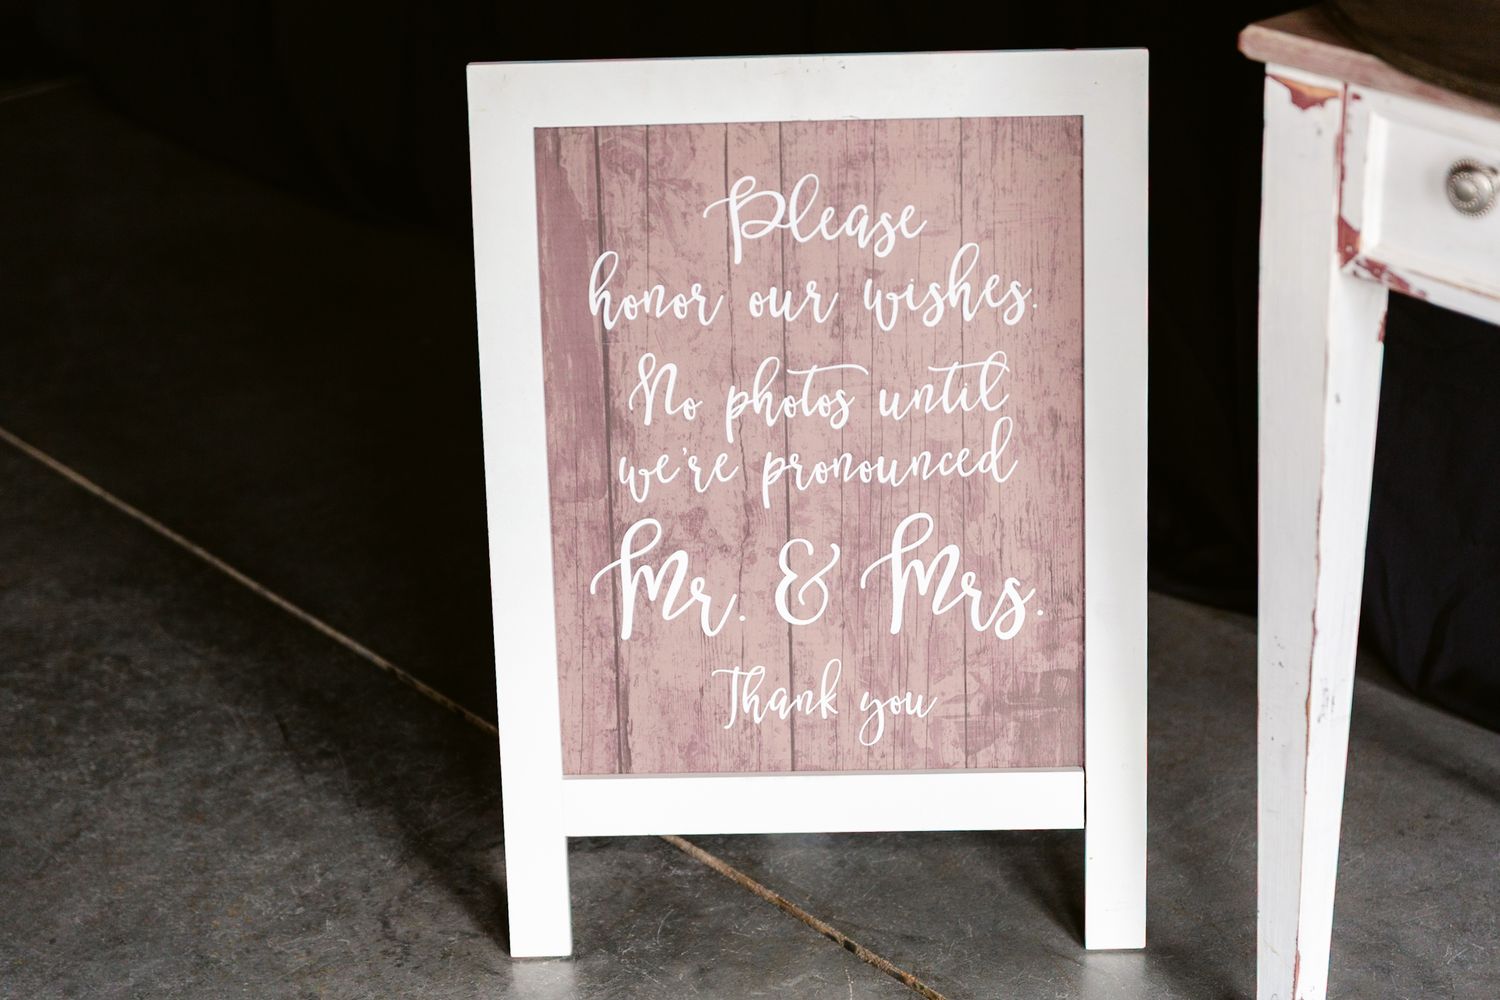 Please
honor our wishes.
No photos until
we're pronounced
Mr. & Mrs.
Thank you